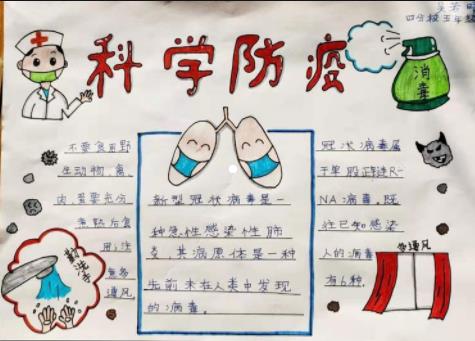 四分校五年级
科学防疫
消毒
不要食用野
生动物、禽、
肉蛋要充分
煮熟后食
用。注
意多
通风。
勤洗手
新型冠状病毒是一
种急性感染性肺
炎，其病原体是一种
先前未在人类中发现
的病毒。
冠状病毒属
于单股正链R-
NA病毒，既
往已知感染
人的病毒
有6种。
通风